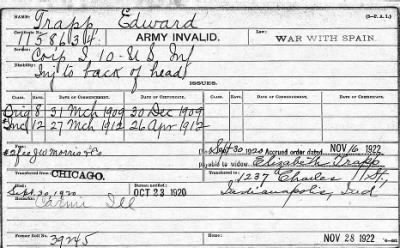 NAME: Trapp Edward (3-F. A. 1.)
Certificate No. 1158634. ARMY INVALID. WAR WITH SPAIN.
Service: Corp I, 10 - U S Inf
Disability: Inj to back of head
ISSUES.
CLASS. RATE. DATE OF COMMENCEMENT. DATE OF CERTIFICATE. CLASS. RATE. DATE OF COMMENCEMENT. DATE OF CERTIFICATE.
Orig 8 31 Mch 1909 30 Dec 1909
Inc 12 27 Mch 1912 26 Apr 1912
Sept 30 1920 Accrued order dated NOV 16 1922
#2 fee J W Morris & Co payable to widow. Elizabeth Trapp
Transferred from CHICAGO. Transferred to 1237 Charles St,
Indianapolis, Ind
Sept. 30, 1920 OCT 23 1920
Carmi Ill
Former Roll No. 39245 NOV 28 1922